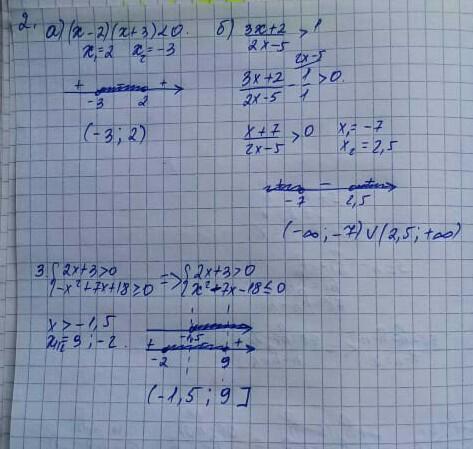 2. а) (x-2)(x+3)<0.
x₁=2 x₂=-3
+ - +
-3 2 x
(-3; 2)
б) (3x+2)/(2x-5) > 1
(3x+2)/(2x-5) - 1/1 \2x-5 > 0.
(x+7)/(2x-5) > 0 x₁=-7
x₂=2,5
+ - +
-7 2,5
(-∞; -7) ∪ (2,5; +∞)
3. { 2x+3>0 => { 2x+3>0
{ -x²+7x+18≥0 { x²-7x-18≤0
x>-1,5
x₁,₂=9; -2.
-1,5
+ +
-2 9
(-1,5; 9]